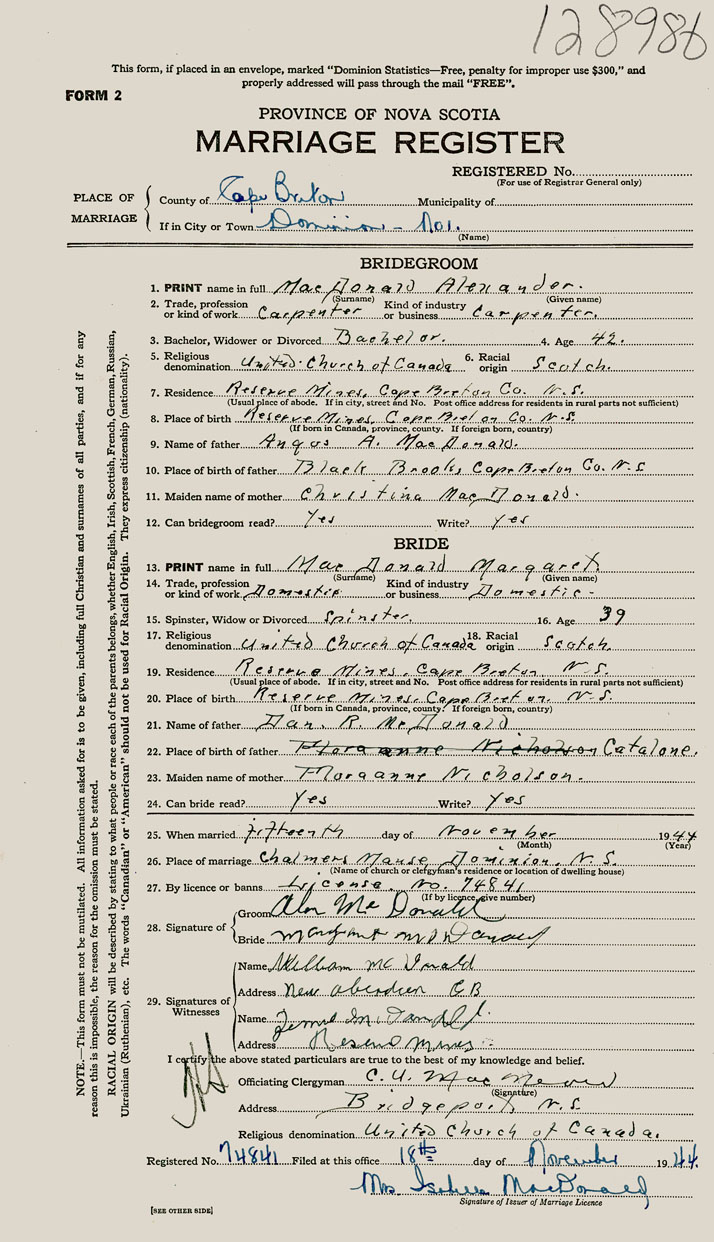 128986
This form, if placed in an envelope, marked "Dominion Statistics—Free, penalty for improper use $300," and
properly addressed will pass through the mail "FREE".
FORM 2
PROVINCE OF NOVA SCOTIA
MARRIAGE REGISTER
REGISTERED No.
(For use of Registrar General only)
PLACE OF MARRIAGE
County of Cape Breton Municipality of
If in City or Town Dominion - No1.
(Name)
BRIDEGROOM
1. PRINT name in full MacDonald Alexander.
(Surname) (Given name)
2. Trade, profession or kind of work Carpenter Kind of industry or business Carpenter.
3. Bachelor, Widower or Divorced Bachelor. 4. Age 42.
5. Religious denomination United Church of Canada 6. Racial origin Scotch.
7. Residence Reserve Mines, Cape Breton Co. N.S.
(Usual place of abode. If in city, street and No. Post office address for residents in rural parts not sufficient)
8. Place of birth Reserve Mines, Cape Breton Co. N.S.
(If born in Canada, province, county. If foreign born, country)
9. Name of father Angus A. MacDonald.
10. Place of birth of father Black Brooks Cape Breton Co. N.S
11. Maiden name of mother Christina MacDonald.
12. Can bridegroom read? Yes Write? Yes
BRIDE
13. PRINT name in full MacDonald Margaret.
(Surname) (Given name)
14. Trade, profession or kind of work Domestic Kind of industry or business Domestic -
15. Spinster, Widow or Divorced Spinster. 16. Age 39
17. Religious denomination United Church of Canada 18. Racial origin Scotch.
19. Residence Reserve Mines, Cape Breton N.S.
(Usual place of abode. If in city, street and No. Post office address for residents in rural parts not sufficient)
20. Place of birth Reserve Mines, Cape Breton. N.S.
(If born in Canada, province, county. If foreign born, country)
21. Name of father Dan R. McDonald
22. Place of birth of father Floraanne Nicholson Catalone.
23. Maiden name of mother Floraanne Nicholson.
24. Can bride read? Yes Write? Yes
25. When married fifteenth day of November 1944
(Month) (Year)
26. Place of marriage Chalmers Manse, Dominion, N.S.
(Name of church or clergyman's residence or location of dwelling house)
27. By licence or banns License. No. 74841
(If by licence, give number)
28. Signature of
Groom Alex McDonald
Bride Margaret McDonald
29. Signatures of Witnesses
Name William McDonald
Address New Aberdeen C.B
Name
Address Reserve Mines
I certify the above stated particulars are true to the best of my knowledge and belief.
Officiating Clergyman C. U. Mac
(Signature)
Address Bridgeport N.S.
Religious denomination United Church of Canada.
Registered No. 74841 Filed at this office 18th day of November 1944.
Mrs MacDonald
Signature of Issuer of Marriage Licence
[SEE OTHER SIDE]
NOTE.—This form must not be mutilated. All information asked for is to be given, including full Christian and surnames of all parties, and if for any
reason this is impossible, the reason for the omission must be stated.
RACIAL ORIGIN will be described by stating to what people or race each of the parents belongs, whether English, Irish, Scottish, French, German, Russian,
Ukrainian (Ruthenian), etc. The words "Canadian" or "American" should not be used for Racial Origin. They express citizenship (nationality).